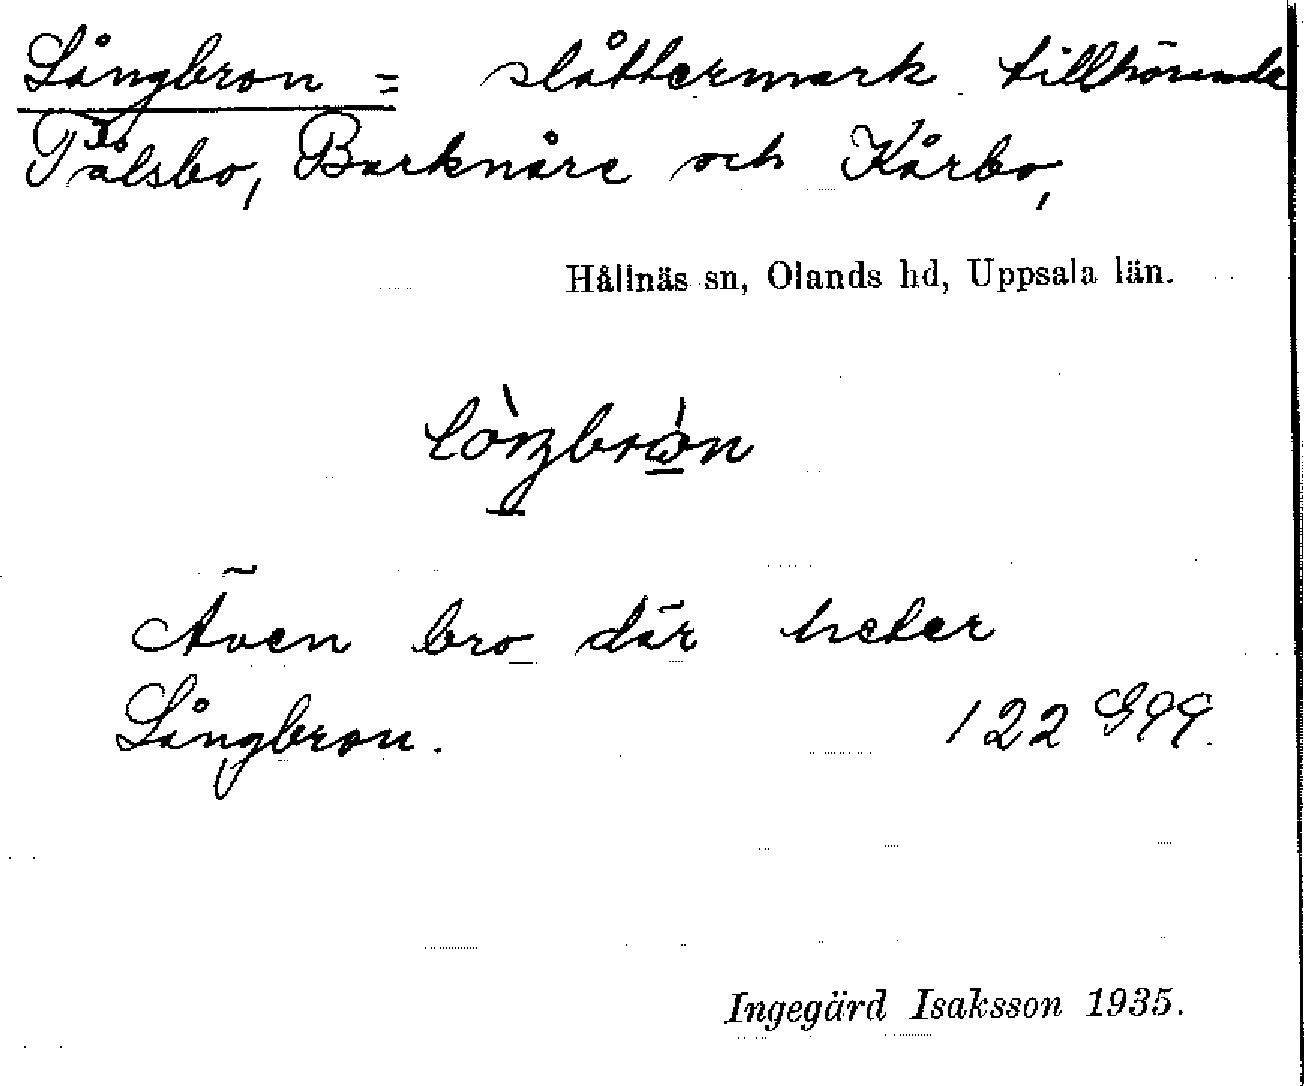 Långbron = slåttermark tillhörande
Tålsbo, Barknåre och Kårbo,
Hållnäs sn, Olands hd, Uppsala län.
Även bro där heter
Långbron. 122
Ingegärd Isaksson 1935.